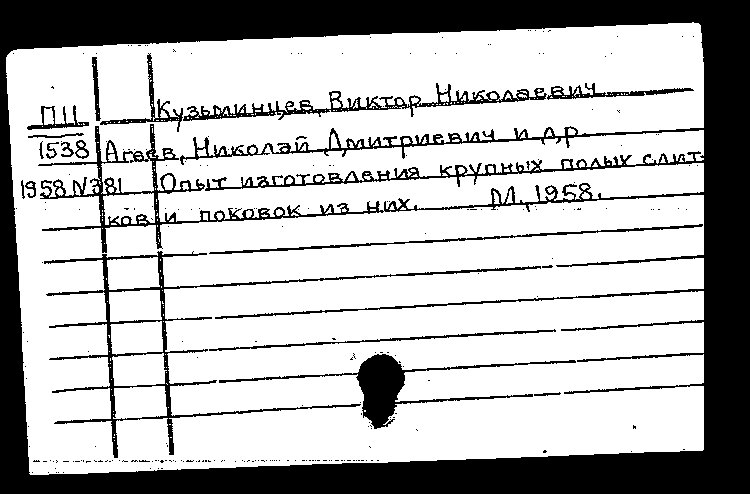 П11 Кузьминцев, Виктор Николаевич
1538 Агеев, Николай Дмитриевич и др.
1958 N381 Опыт изготовления крупных полых слит-
ков и поковок из них. М., 1958.